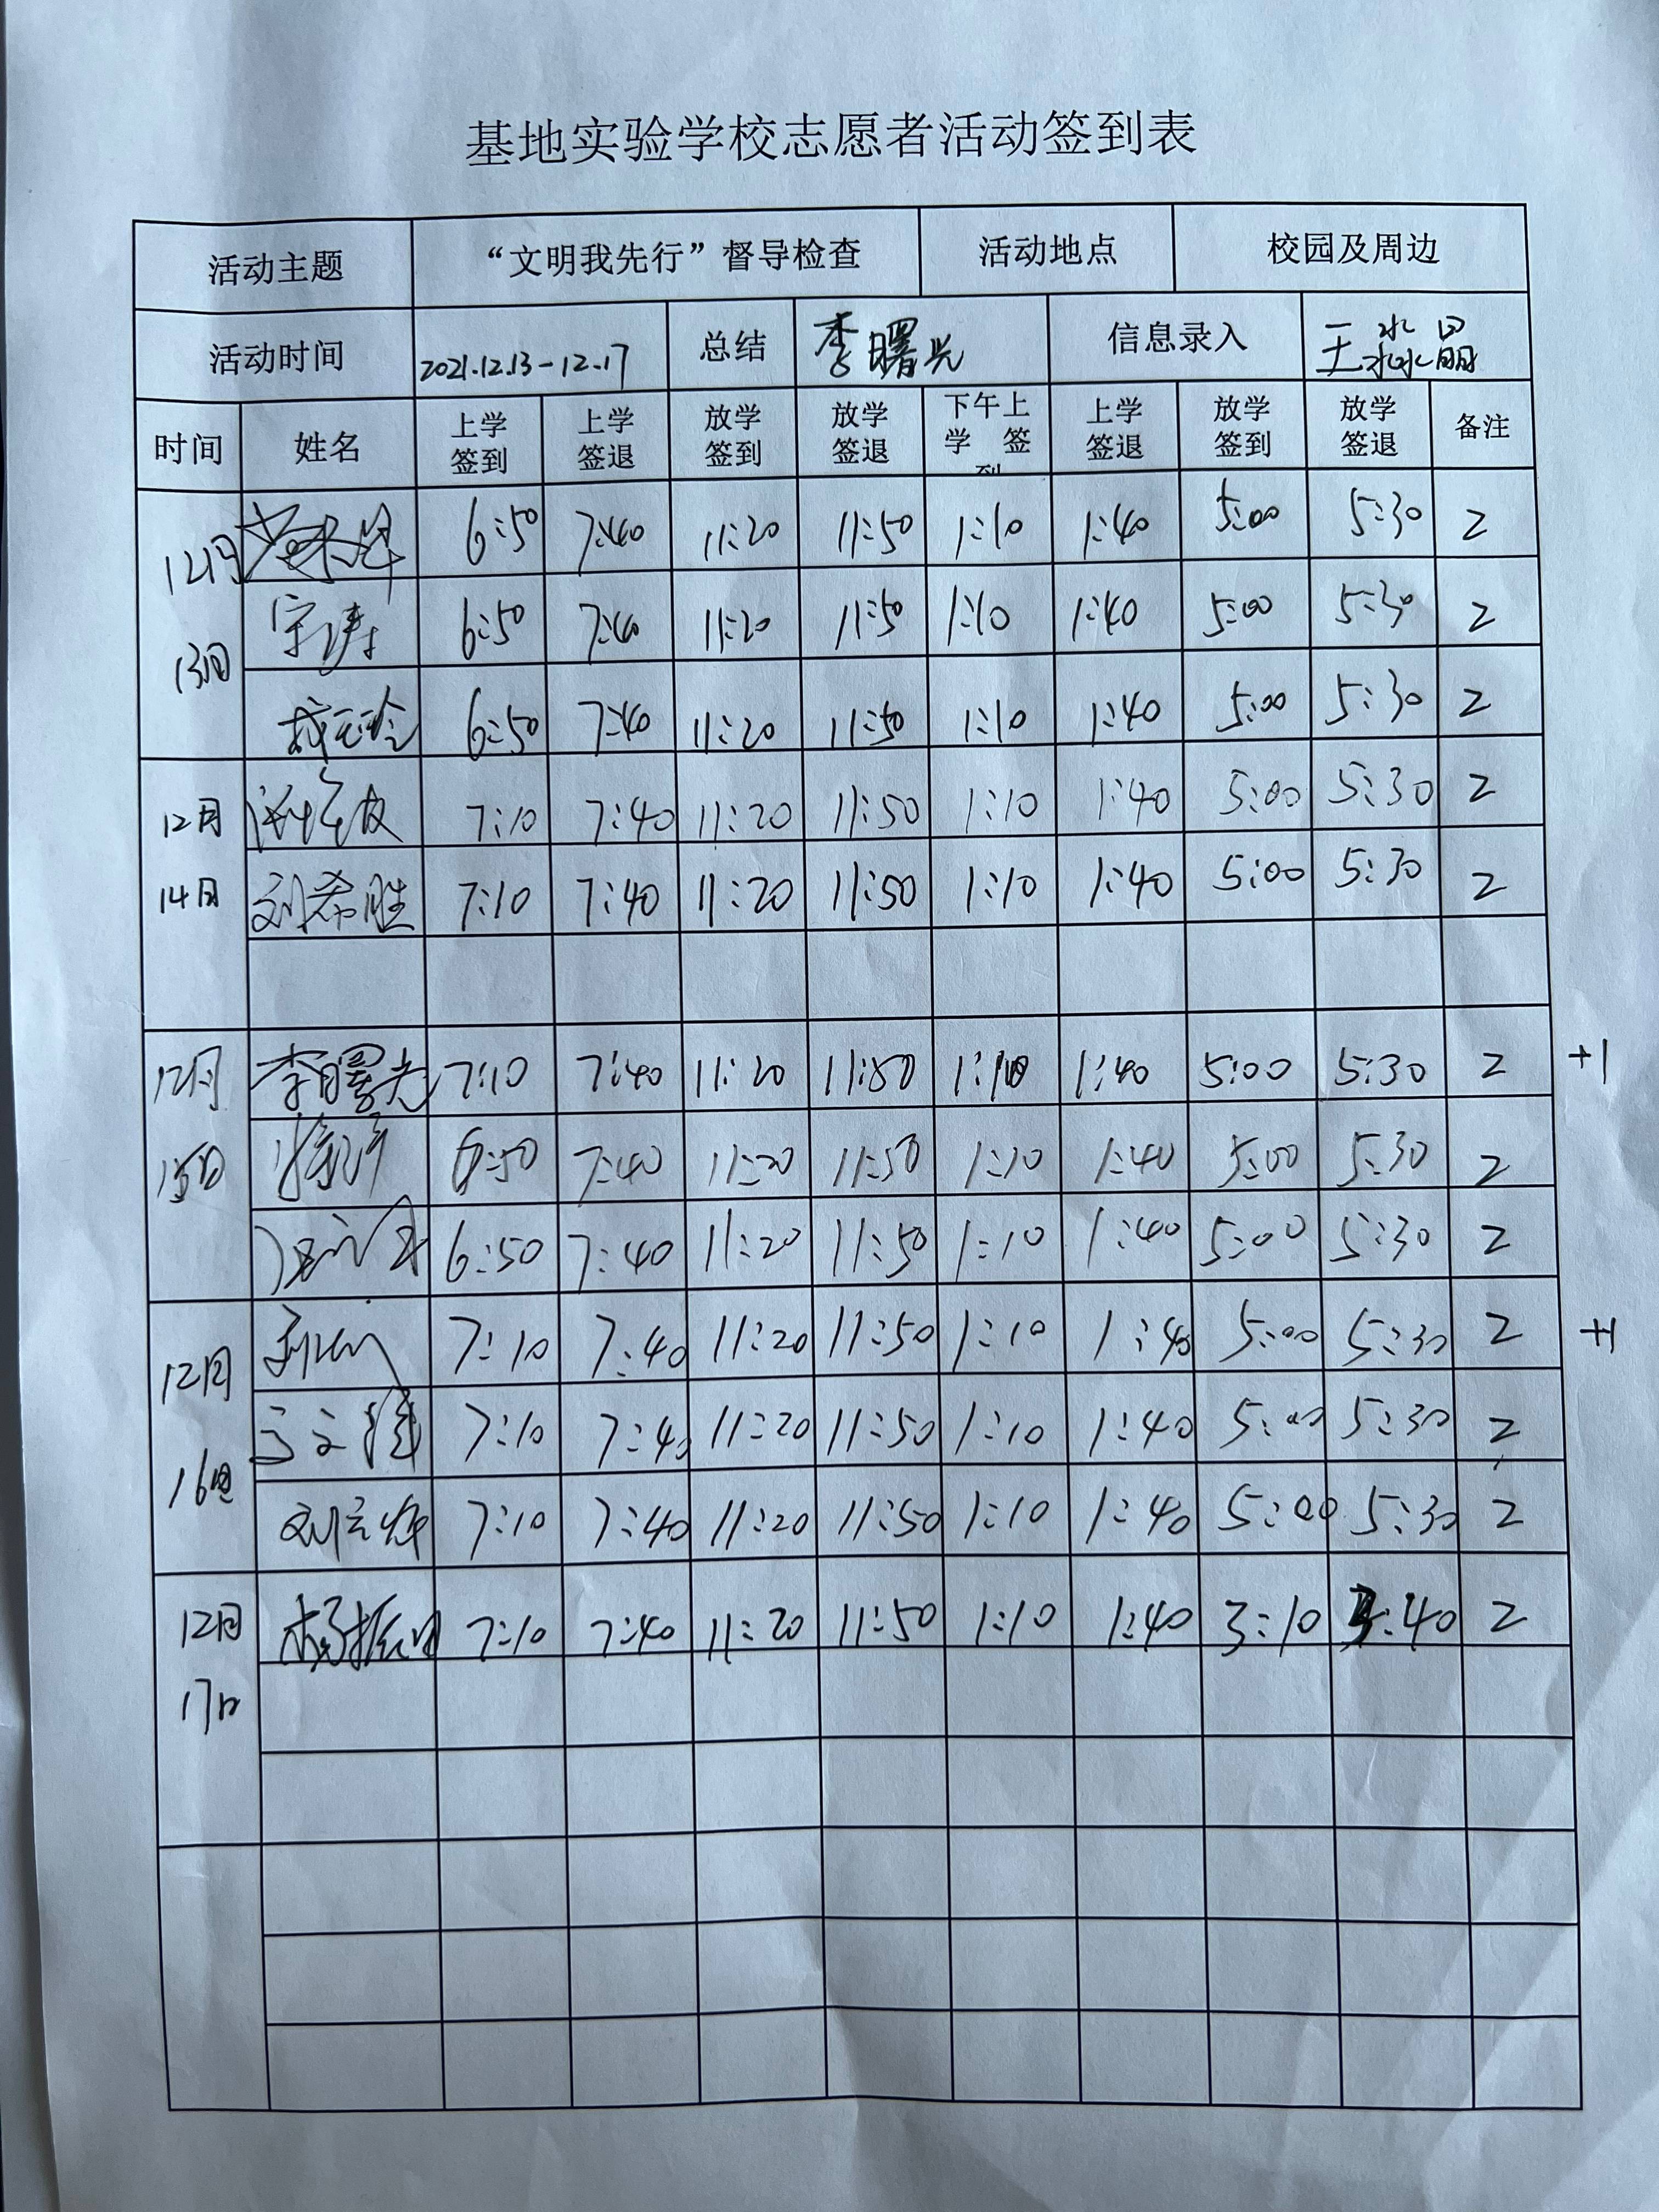 基地实验学校志愿者活动签到表
活动主题 “文明我先行”督导检查 活动地点 校园及周边
活动时间 2021.12.13-12.17 总结 李曙光 信息录入 王淼晶
时间 姓名 上学签到 上学签退 放学签到 放学签退 下午上学签到 上学签退 放学签到 放学签退 备注
12月13日 6:50 7:40 11:20 11:50 1:10 1:40 5:00 5:30 2
6:50 7:40 11:20 11:50 1:10 1:40 5:00 5:30 2
6:50 7:40 11:20 11:50 1:10 1:40 5:00 5:30 2
12月14日 7:10 7:40 11:20 11:50 1:10 1:40 5:00 5:30 2
刘希胜 7:10 7:40 11:20 11:50 1:10 1:40 5:00 5:30 2
12月15日 李曙光 7:10 7:40 11:20 11:50 1:10 1:40 5:00 5:30 2 +1
6:50 7:40 11:20 11:50 1:10 1:40 5:00 5:30 2
6:50 7:40 11:20 11:50 1:10 1:40 5:00 5:30 2
12月16日 7:10 7:40 11:20 11:50 1:10 1:40 5:00 5:30 2 +1
7:10 7:40 11:20 11:50 1:10 1:40 5:00 5:30 2
7:10 7:40 11:20 11:50 1:10 1:40 5:00 5:30 2
12月17日 7:10 7:40 11:20 11:50 1:10 1:40 3:10 3:40 2